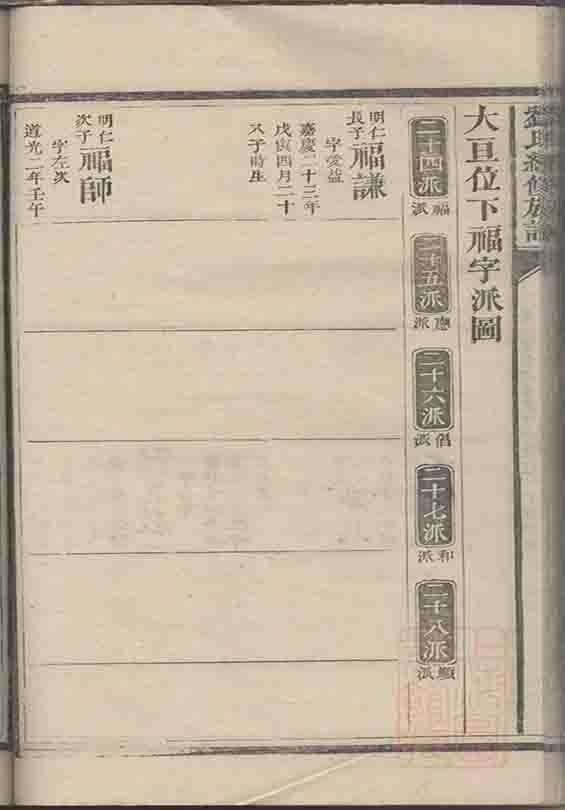 劉氏續修族譜
大亘位下福字派圖
二十四派
福派
二十五派
應派
二十六派
倡派
二十七派
和派
二十八派
顯派
明仁
長子
福謙
字受益
嘉慶二十三年
戊寅四月二十
又子時生
明仁
次子
福師
字左次
道光二年壬午